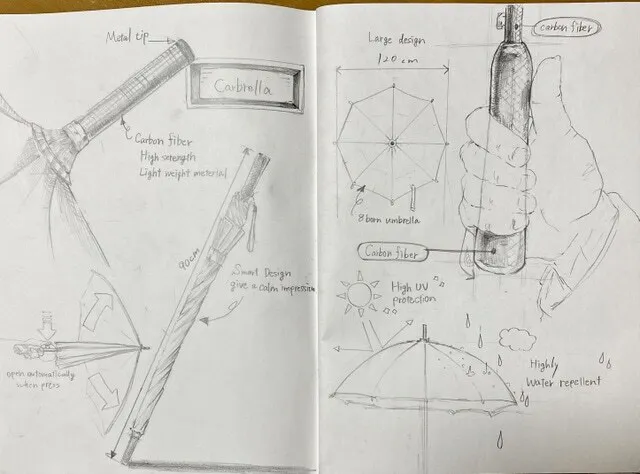 Metal tip
Carbrella
Carbon fiber
High strength
Light weight material
90cm
Smart Design
give a calm impression
open automatically
when press
carbon fiber
Large design
120cm
8 born umbrella
Carbon fiber
High UV
protection
Highly
Water repellent